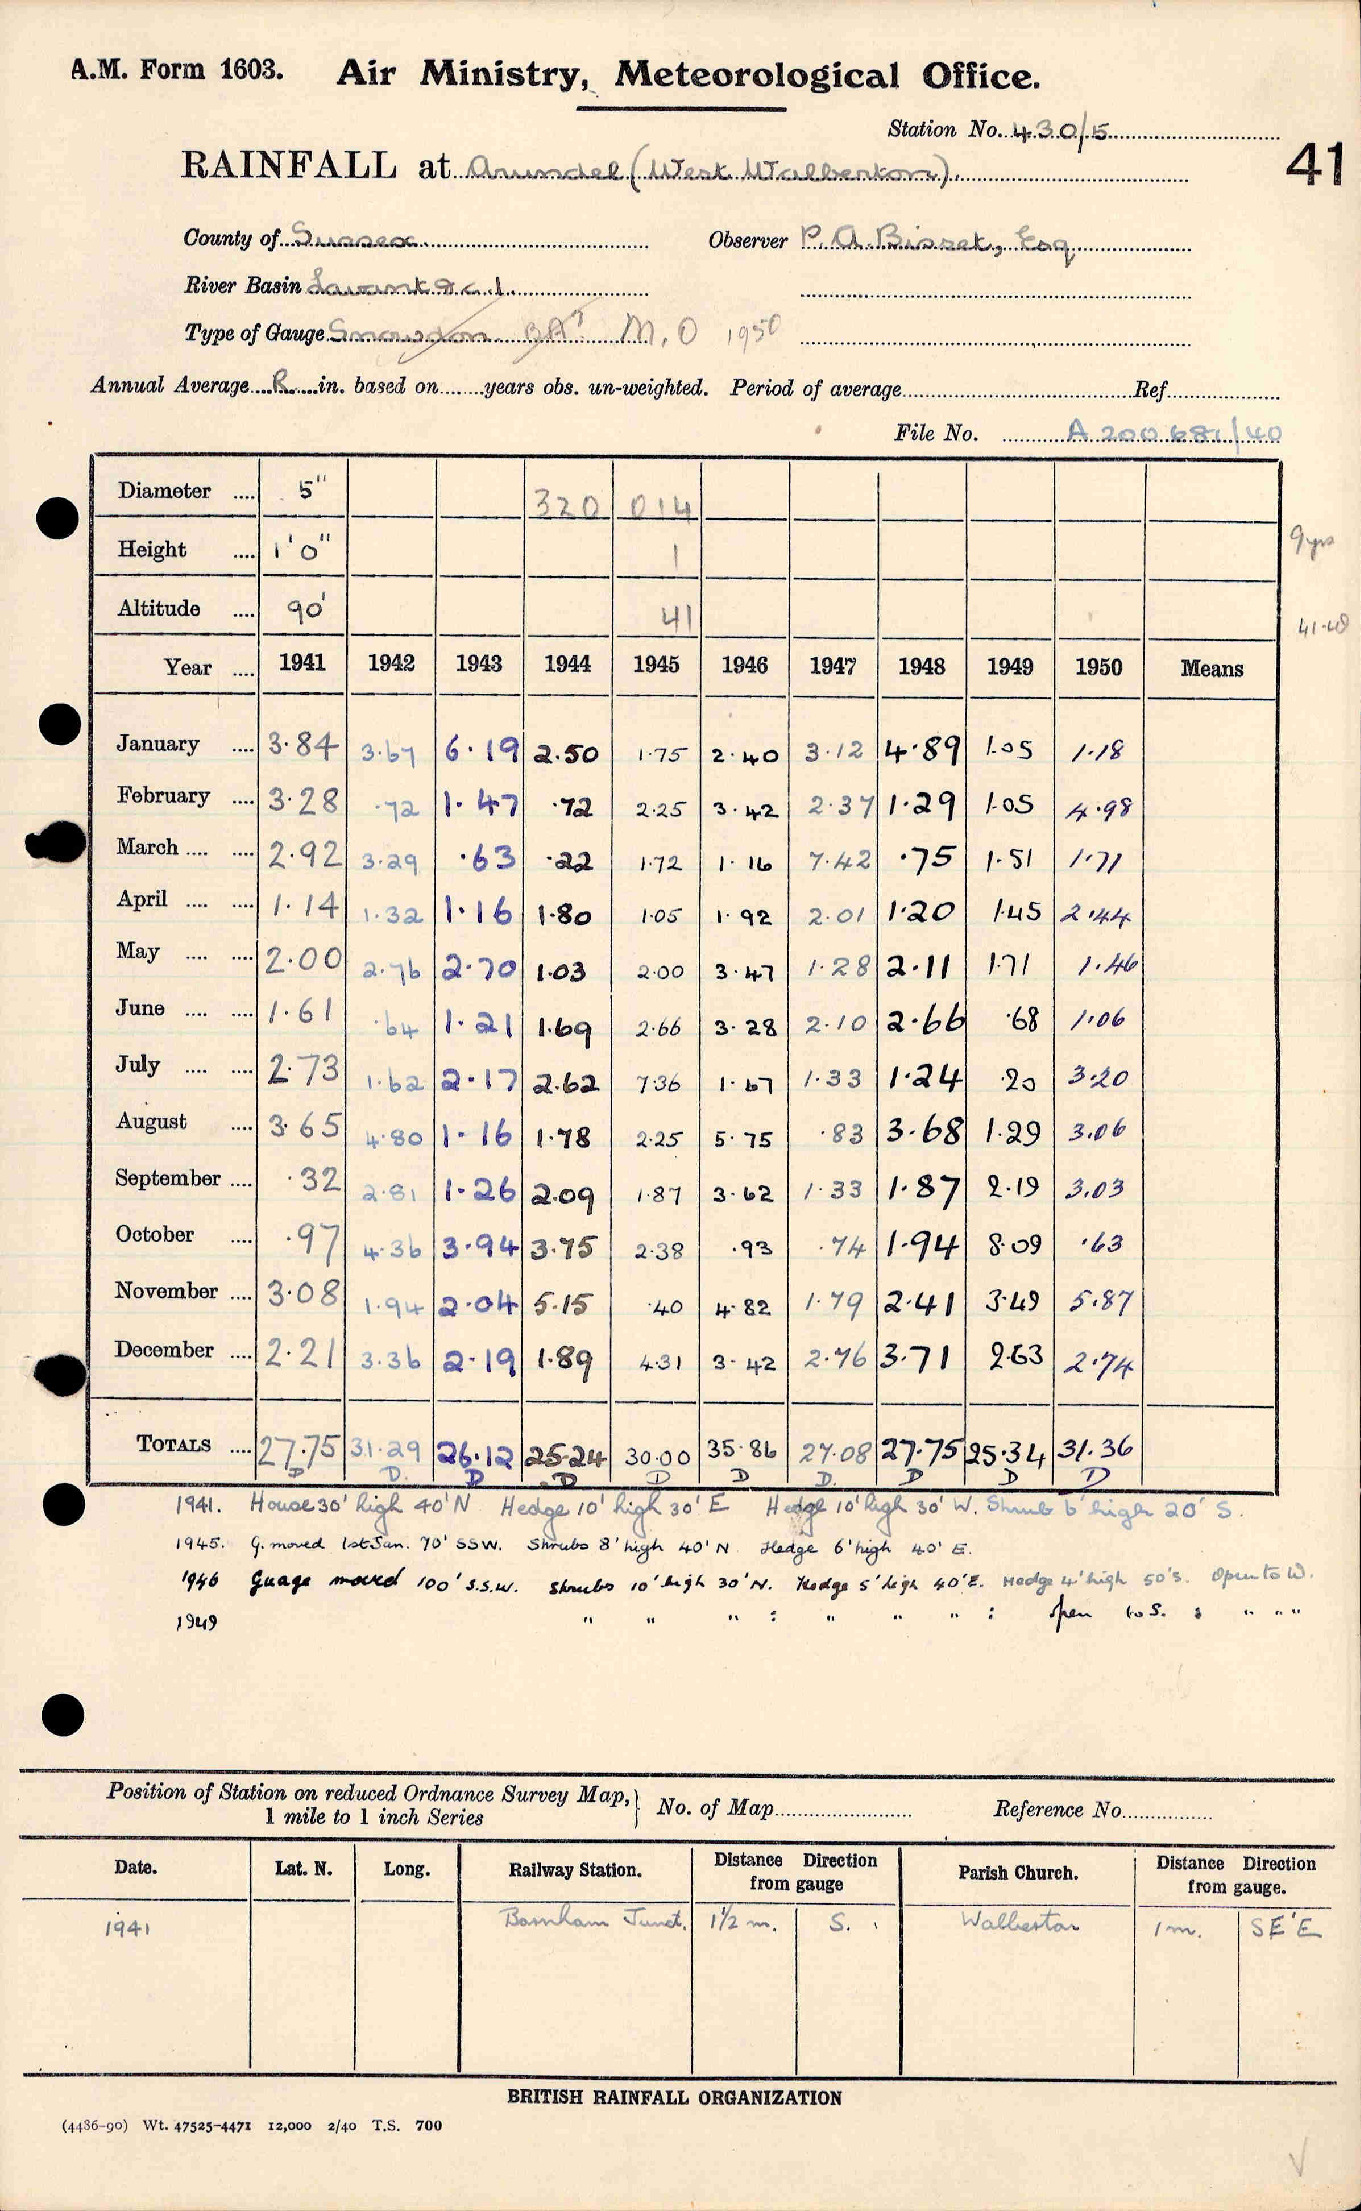 A.M. Form 1603. Air Ministry, Meteorological Office.
Station No. 430/5
41
RAINFALL at Arundel (West Walberton).
County of Sussex. Observer P. A. Bisset, Esq
River Basin Lavant &c 1.
Type of Gauge Snowdon BA? M.O 1950
Annual Average R in. based on years obs. un-weighted. Period of average Ref.
File No. A 200681/40
Diameter 5" 320 014
Height 1'0" 1 9 yrs
Altitude 90' 41 41-48
Year 1941 1942 1943 1944 1945 1946 1947 1948 1949 1950 Means
January 3.84 3.67 6.19 2.50 1.75 2.40 3.12 4.89 1.05 1.18
February 3.28 .72 1.47 .72 2.25 3.42 2.37 1.29 1.05 4.98
March 2.92 3.29 .63 .22 1.72 1.16 7.42 .75 1.51 1.71
April 1.14 1.32 1.16 1.80 1.05 1.92 2.01 1.20 1.45 2.44
May 2.00 2.76 2.70 1.03 2.00 3.47 1.28 2.11 1.71 1.46
June 1.61 .64 1.21 1.69 2.66 3.28 2.10 2.66 .68 1.06
July 2.73 1.62 2.17 2.62 7.36 1.67 1.33 1.24 .20 3.20
August 3.65 4.80 1.16 1.78 2.25 5.75 .83 3.68 1.29 3.06
September .32 2.81 1.26 2.09 1.87 3.62 1.33 1.87 2.19 3.03
October .97 4.36 3.94 3.75 2.38 .93 .74 1.94 8.09 .63
November 3.08 1.94 2.04 5.15 .40 4.82 1.79 2.41 3.49 5.87
December 2.21 3.36 2.19 1.89 4.31 3.42 2.76 3.71 2.63 2.74
TOTALS 27.75 31.29 26.12 25.24 30.00 35.86 27.08 27.75 25.34 31.36
D D. D D D D D. D D D
1941. House 30' high 40' N Hedge 10' high 30' E Hedge 10' high 30' W. Shrub 6' high 20' S.
1945. G. moved 1st Jan. 70' SSW. Shrubs 8' high 40' N Hedge 6' high 40' E.
1946 Guage moved 100' S.S.W. Shrubs 10' high 30' N. Hedge 5' high 40' E. Hedge 4' high 50' S. Open to W.
1949 " " " : " " " : open to S. : " " "
Position of Station on reduced Ordnance Survey Map, 1 mile to 1 inch Series } No. of Map Reference No.
Date. Lat. N. Long. Railway Station. Distance Direction from gauge Parish Church. Distance Direction from gauge.
1941 Barnham Junct. 1½ m. S. Walberton 1 m. SE'E
BRITISH RAINFALL ORGANIZATION
(4436-90) Wt. 47525-4471 12,000 2/40 T.S. 700